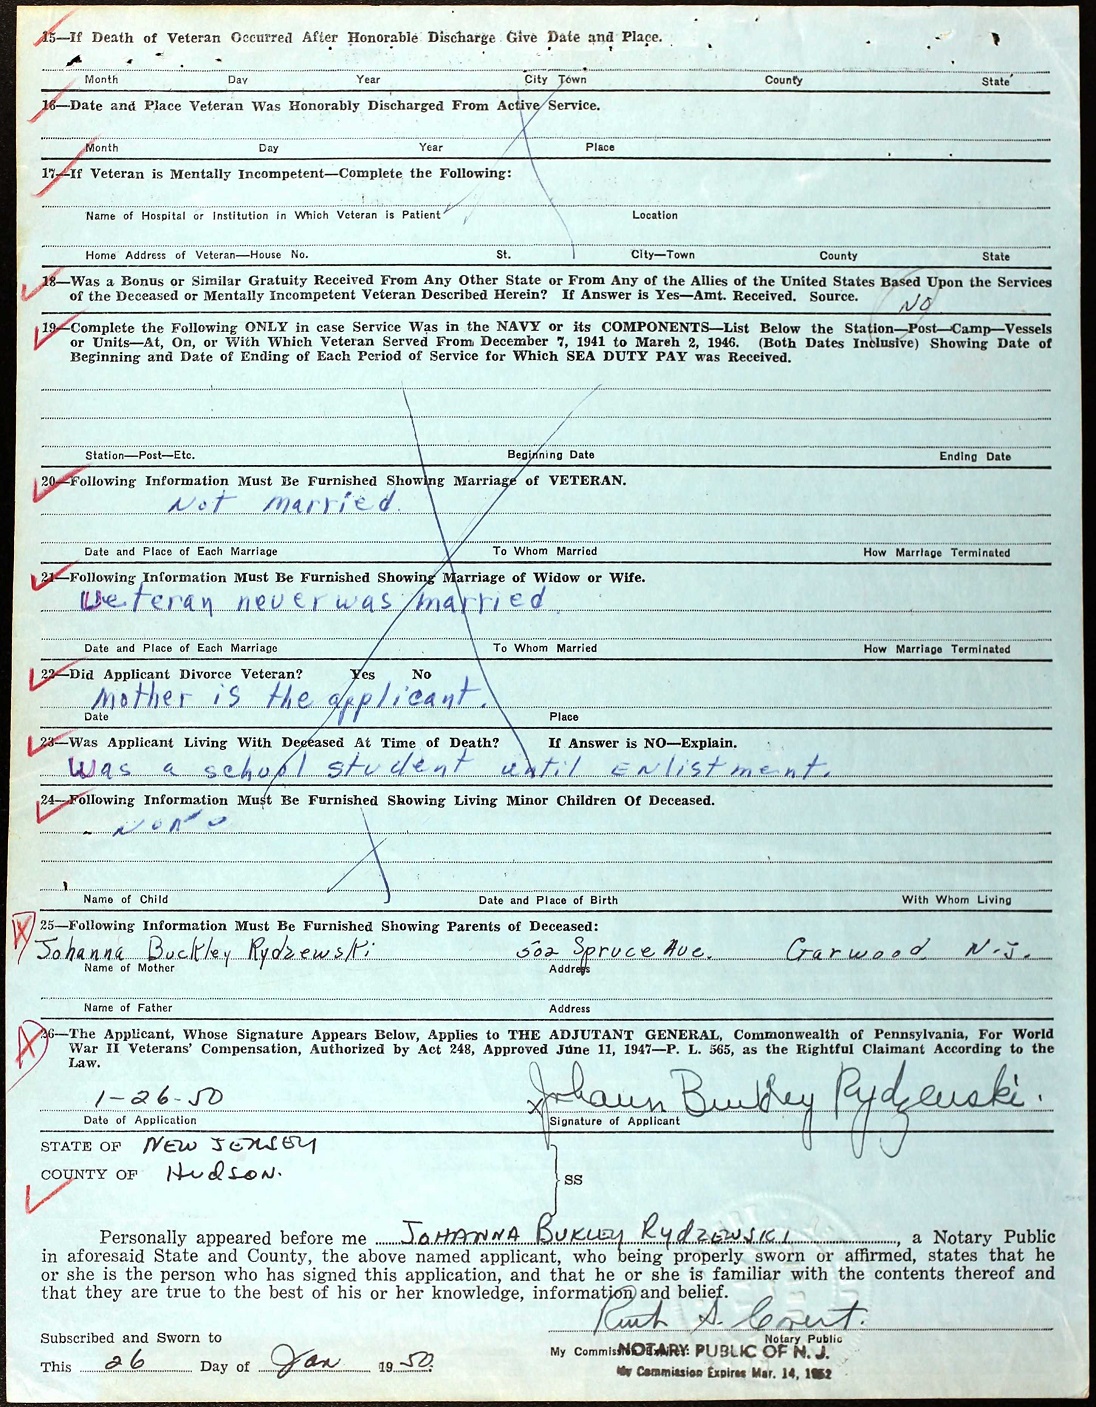 15—If Death of Veteran Occurred After Honorable Discharge Give Date and Place.
Month Day Year City Town County State
16—Date and Place Veteran Was Honorably Discharged From Active Service.
Month Day Year Place
17—If Veteran is Mentally Incompetent—Complete the Following:
Name of Hospital or Institution in Which Veteran is Patient Location
Home Address of Veteran—House No. St. City—Town County State
18—Was a Bonus or Similar Gratuity Received From Any Other State or From Any of the Allies of the United States Based Upon the Services
of the Deceased or Mentally Incompetent Veteran Described Herein? If Answer is Yes—Amt. Received. Source. NO
19—Complete the Following ONLY in case Service Was in the NAVY or its COMPONENTS—List Below the Station—Post—Camp—Vessels
or Units—At, On, or With Which Veteran Served From December 7, 1941 to March 2, 1946. (Both Dates Inclusive) Showing Date of
Beginning and Date of Ending of Each Period of Service for Which SEA DUTY PAY was Received.
Station—Post—Etc. Beginning Date Ending Date
20—Following Information Must Be Furnished Showing Marriage of VETERAN.
Not married.
Date and Place of Each Marriage To Whom Married How Marriage Terminated
21—Following Information Must Be Furnished Showing Marriage of Widow or Wife.
Veteran never was married
Date and Place of Each Marriage To Whom Married How Marriage Terminated
22—Did Applicant Divorce Veteran? Yes No
Mother is the applicant.
Date Place
23—Was Applicant Living With Deceased At Time of Death? If Answer is NO—Explain.
Was a school student until enlistment.
24—Following Information Must Be Furnished Showing Living Minor Children Of Deceased.
None
Name of Child Date and Place of Birth With Whom Living
25—Following Information Must Be Furnished Showing Parents of Deceased:
Johanna Buckley Rydzewski 502 Spruce Ave. Garwood N.J.
Name of Mother Address
Name of Father Address
26—The Applicant, Whose Signature Appears Below, Applies to THE ADJUTANT GENERAL, Commonwealth of Pennsylvania, For World
War II Veterans' Compensation, Authorized by Act 248, Approved June 11, 1947—P. L. 565, as the Rightful Claimant According to the
Law.
1-26-50 x Johann Buckley Rydzewski.
Date of Application Signature of Applicant
STATE OF NEW JERSEY
COUNTY OF HUDSON. SS
Personally appeared before me JOHANNA BUKLEY RYDZEWSKI, a Notary Public
in aforesaid State and County, the above named applicant, who being properly sworn or affirmed, states that he
or she is the person who has signed this application, and that he or she is familiar with the contents thereof and
that they are true to the best of his or her knowledge, information and belief.
Ruth S. Covert.
Subscribed and Sworn to Notary Public
My Commission Expires: NOTARY PUBLIC OF N. J.
This 26 Day of Jan 1950.
My Commission Expires Mar. 14, 1952